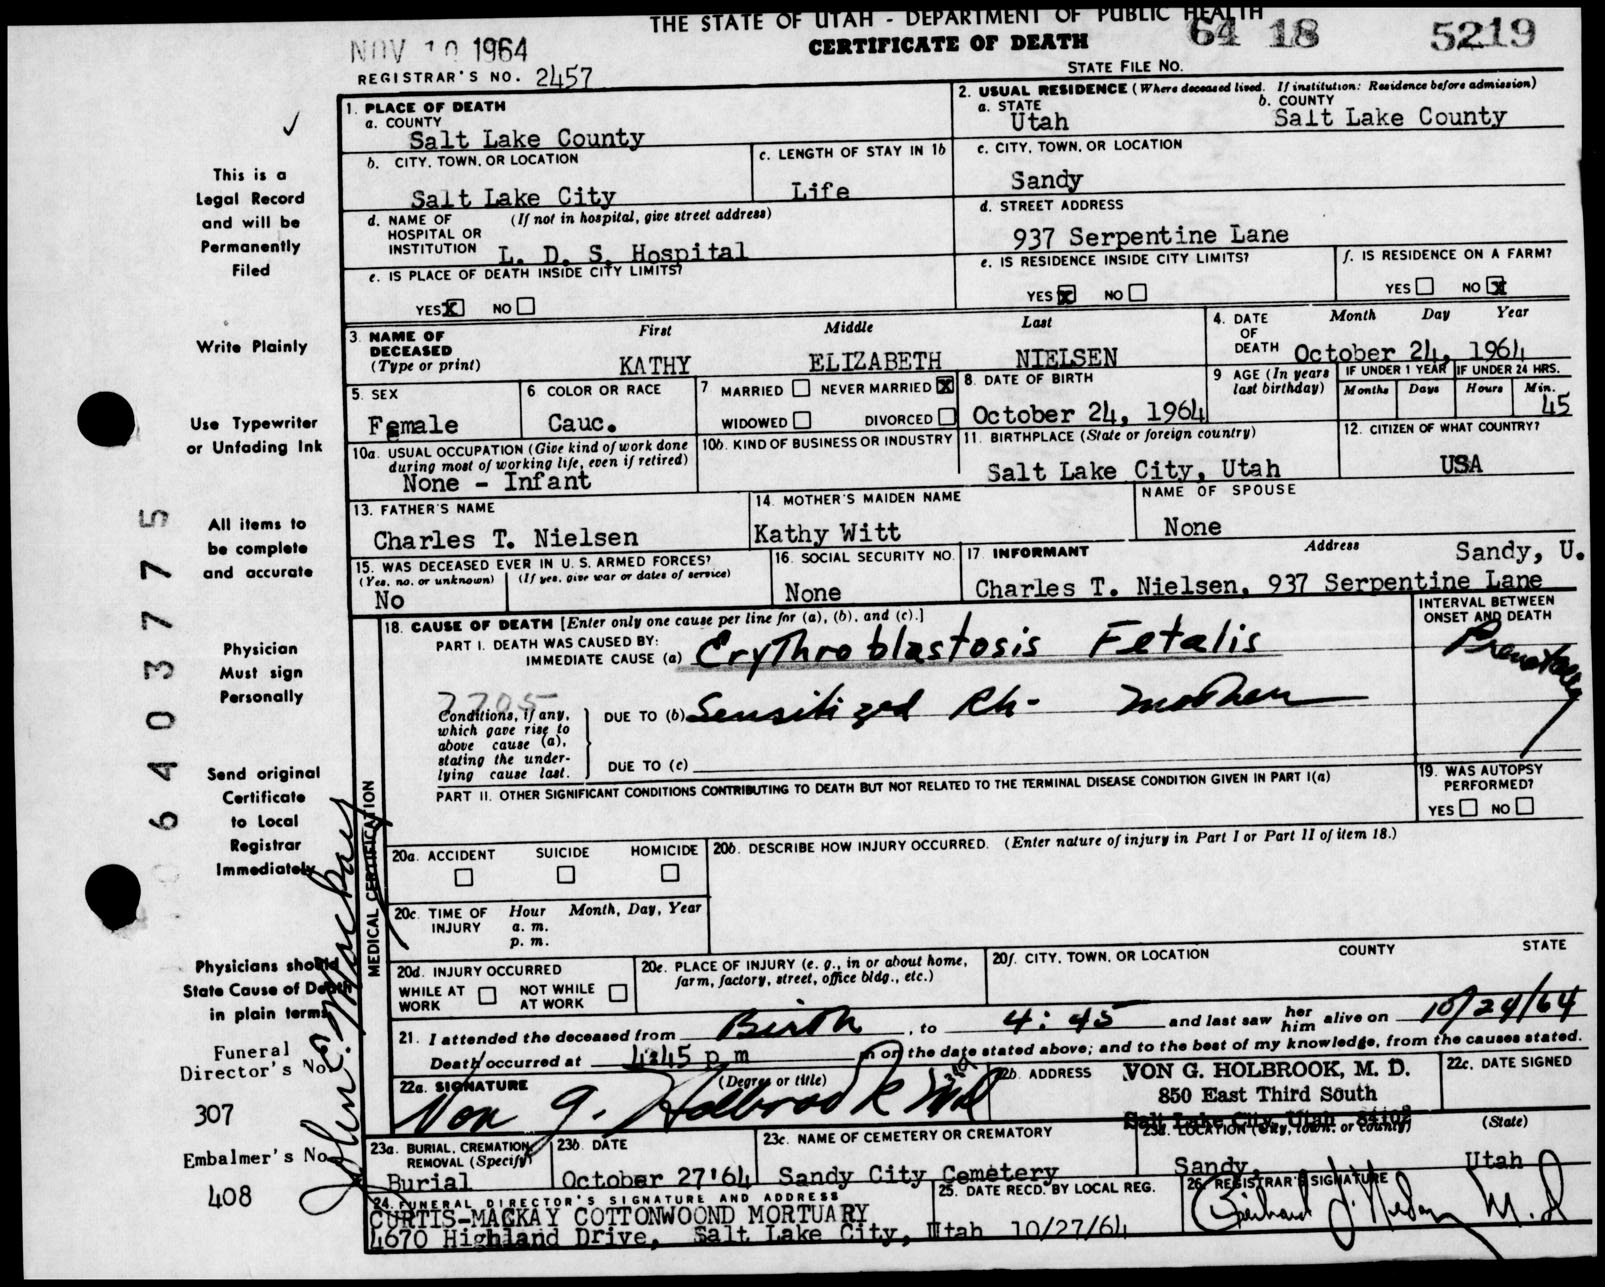 THE STATE OF UTAH - DEPARTMENT OF PUBLIC HEALTH
CERTIFICATE OF DEATH
NOV 10 1964
64 18 5219
STATE FILE NO.
REGISTRAR'S NO. 2457
This is a
Legal Record
and will be
Permanently
Filed
Write Plainly
Use Typewriter
or Unfading Ink
All items to
be complete
and accurate
Physician
Must sign
Personally
Send original
Certificate
to Local
Registrar
Immediately
Physicians should
State Cause of Death
in plain terms
Funeral
Director's No.
307
Embalmer's No.
408
John C. Mackay
6403775
1. PLACE OF DEATH
a. COUNTY
Salt Lake County
b. CITY, TOWN, OR LOCATION
Salt Lake City
c. LENGTH OF STAY IN 1b
Life
d. NAME OF HOSPITAL OR INSTITUTION (If not in hospital, give street address)
L. D. S. Hospital
e. IS PLACE OF DEATH INSIDE CITY LIMITS?
YES X NO
2. USUAL RESIDENCE (Where deceased lived. If institution: Residence before admission)
a. STATE
Utah
b. COUNTY
Salt Lake County
c. CITY, TOWN, OR LOCATION
Sandy
d. STREET ADDRESS
937 Serpentine Lane
e. IS RESIDENCE INSIDE CITY LIMITS?
YES X NO
f. IS RESIDENCE ON A FARM?
YES NO X
3. NAME OF DECEASED (Type or print)
First Middle Last
KATHY ELIZABETH NIELSEN
4. DATE OF DEATH Month Day Year
October 24, 1964
5. SEX
Female
6 COLOR OR RACE
Cauc.
7 MARRIED NEVER MARRIED X
WIDOWED DIVORCED
8. DATE OF BIRTH
October 24, 1964
9 AGE (In years last birthday)
IF UNDER 1 YEAR IF UNDER 24 HRS.
Months Days Hours Min.
45
10a. USUAL OCCUPATION (Give kind of work done during most of working life, even if retired)
None - Infant
10b. KIND OF BUSINESS OR INDUSTRY
11. BIRTHPLACE (State or foreign country)
Salt Lake City, Utah
12. CITIZEN OF WHAT COUNTRY?
USA
13. FATHER'S NAME
Charles T. Nielsen
14. MOTHER'S MAIDEN NAME
Kathy Witt
NAME OF SPOUSE
None
15. WAS DECEASED EVER IN U. S. ARMED FORCES?
(Yes, no, or unknown) (If yes, give war or dates of service)
No
16. SOCIAL SECURITY NO.
None
17. INFORMANT Address
Sandy, U.
Charles T. Nielsen, 937 Serpentine Lane
MEDICAL CERTIFICATION
18. CAUSE OF DEATH [Enter only one cause per line for (a), (b), and (c).]
INTERVAL BETWEEN ONSET AND DEATH
PART I. DEATH WAS CAUSED BY:
IMMEDIATE CAUSE (a) Erythroblastosis Fetalis
7705
Conditions, if any, which gave rise to above cause (a), stating the underlying cause last.
DUE TO (b) Sensitized Rh- mother
DUE TO (c)
PART II. OTHER SIGNIFICANT CONDITIONS CONTRIBUTING TO DEATH BUT NOT RELATED TO THE TERMINAL DISEASE CONDITION GIVEN IN PART I(a)
19. WAS AUTOPSY PERFORMED?
YES NO
20a. ACCIDENT SUICIDE HOMICIDE
20b. DESCRIBE HOW INJURY OCCURRED. (Enter nature of injury in Part I or Part II of item 18.)
20c. TIME OF INJURY Hour Month, Day, Year
a. m.
p. m.
20d. INJURY OCCURRED
WHILE AT WORK NOT WHILE AT WORK
20e. PLACE OF INJURY (e. g., in or about home, farm, factory, street, office bldg., etc.)
20f. CITY, TOWN, OR LOCATION COUNTY STATE
21. I attended the deceased from Birth, to 4:45 and last saw her him alive on 10/24/64
Death occurred at 4:45 p m m on the date stated above; and to the best of my knowledge, from the causes stated.
22a. SIGNATURE (Degree or title)
Von G. Holbrook MD
22b. ADDRESS
VON G. HOLBROOK, M. D.
850 East Third South
Salt Lake City, Utah 84102
22c. DATE SIGNED
23a. BURIAL, CREMATION, REMOVAL (Specify)
Burial
23b. DATE
October 27'64
23c. NAME OF CEMETERY OR CREMATORY
Sandy City Cemetery
23d. LOCATION (City, town, or county) (State)
Sandy, Utah
24. FUNERAL DIRECTOR'S SIGNATURE AND ADDRESS
CURTIS-MACKAY COTTONWOOND MORTUARY
4670 Highland Drive, Salt Lake City, Utah
25. DATE RECD. BY LOCAL REG.
10/27/64
26. REGISTRAR'S SIGNATURE
M.D